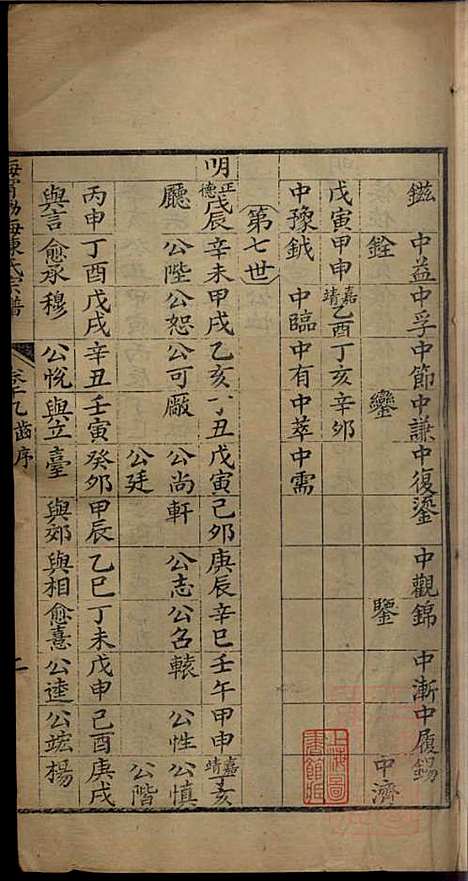 鎡 中益 中孚 中節 中謙 中復 鋈 中觀 錦 中漸 中履 錫
銓 鑾 鑒 中濟
戊寅 甲申 嘉靖乙酉 丁亥 辛卯
中豫 鉞 中臨 中有 中萃 中需
第七世
明 正德戊辰 辛未 甲戌 乙亥 丁丑 戊寅 己卯 庚辰 辛巳 壬午 甲申 嘉靖乙亥
廳 公陛 公恕 公可 廠 公尚 軒 公志 公召 轅 公性 公慎
公廷 公階
丙申 丁酉 戊戌 辛丑 壬寅 癸卯 甲辰 乙巳 丁未 戊申 己酉 庚戌
與言 愈承 穆 公悅 與立 臺 與郊 與相 愈憙 公逵 公竑 楊
海寧渤海陳氏宗譜 卷十九 齒序
上海圖書館藏